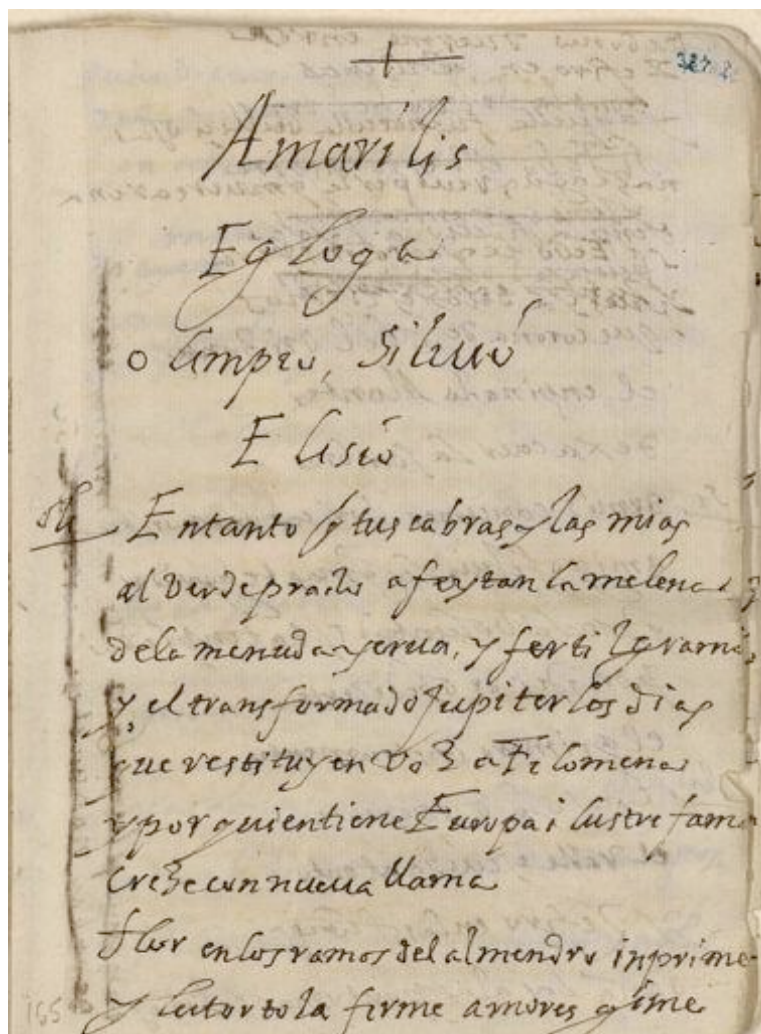 Amarilis
Egloga
olimpio, Siluio
Elisio
Sil Entanto q tus cabras y las mias
al verde prado afeytan la melena
dela menuda yerua, y fertil grama
y el transformado Jupiter los dias
que restituyen voz a Filomena
y por quien tiene Europa ilustre fama
creze con nueua llama
flor en los ramos del almendro inprime
y la tortola firme amores gime